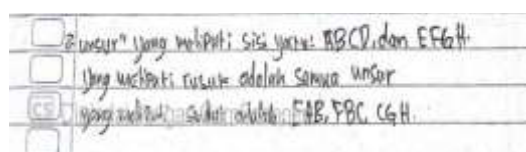 2 unsur" yang meliputi sisi yaitu: ABCD, dan EFGH.
yang meliputi rusuk adalah semua unsur
yang meliputi sudut adalah EAB, FBC, CGH.